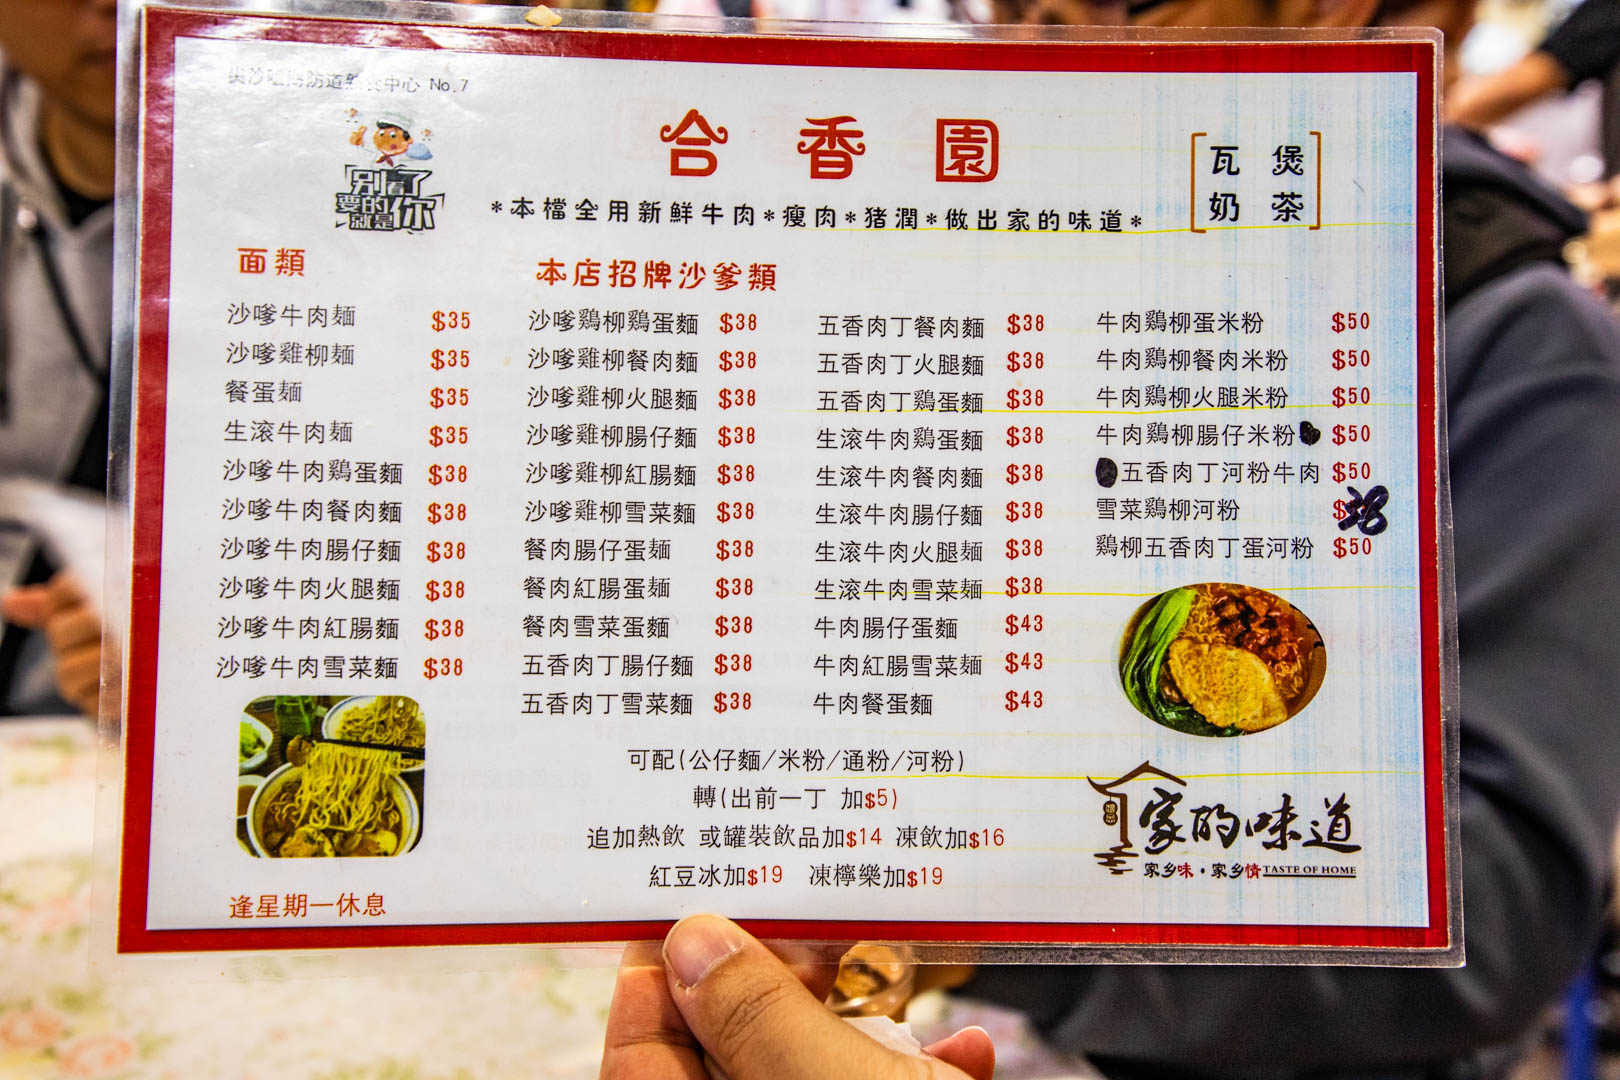 尖沙咀海防道熟食中心 No.7
合香園
瓦煲
奶茶
別看了
要的你
就是
*本檔全用新鮮牛肉*瘦肉*猪潤*做出家的味道*
面類
沙嗲牛肉麵 $35
沙嗲雞柳麵 $35
餐蛋麵 $35
生滚牛肉麵 $35
沙嗲牛肉鷄蛋麵 $38
沙嗲牛肉餐肉麵 $38
沙嗲牛肉腸仔麵 $38
沙嗲牛肉火腿麵 $38
沙嗲牛肉紅腸麵 $38
沙嗲牛肉雪菜麵 $38
本店招牌沙爹類
沙嗲鷄柳鷄蛋麵 $38
沙嗲雞柳餐肉麵 $38
沙嗲雞柳火腿麵 $38
沙嗲雞柳腸仔麵 $38
沙嗲雞柳紅腸麵 $38
沙嗲雞柳雪菜麵 $38
餐肉腸仔蛋麵 $38
餐肉紅腸蛋麵 $38
餐肉雪菜蛋麵 $38
五香肉丁腸仔麵 $38
五香肉丁雪菜麵 $38
五香肉丁餐肉麵 $38
五香肉丁火腿麵 $38
五香肉丁鷄蛋麵 $38
生滚牛肉鷄蛋麵 $38
生滚牛肉餐肉麵 $38
生滚牛肉腸仔麵 $38
生滚牛肉火腿麵 $38
生滚牛肉雪菜麵 $38
牛肉腸仔蛋麵 $43
牛肉紅腸雪菜麵 $43
牛肉餐蛋麵 $43
牛肉鷄柳蛋米粉 $50
牛肉鷄柳餐肉米粉 $50
牛肉鷄柳火腿米粉 $50
牛肉鷄柳腸仔米粉 $50
五香肉丁河粉牛肉 $50
雪菜鷄柳河粉 $38
鷄柳五香肉丁蛋河粉 $50
可配(公仔麵/米粉/通粉/河粉)
轉(出前一丁 加$5)
追加熱飲 或罐裝飲品加$14 凍飲加$16
紅豆冰加$19 凍檸樂加$19
逢星期一休息
家的味道
家乡味·家乡情 TASTE OF HOME